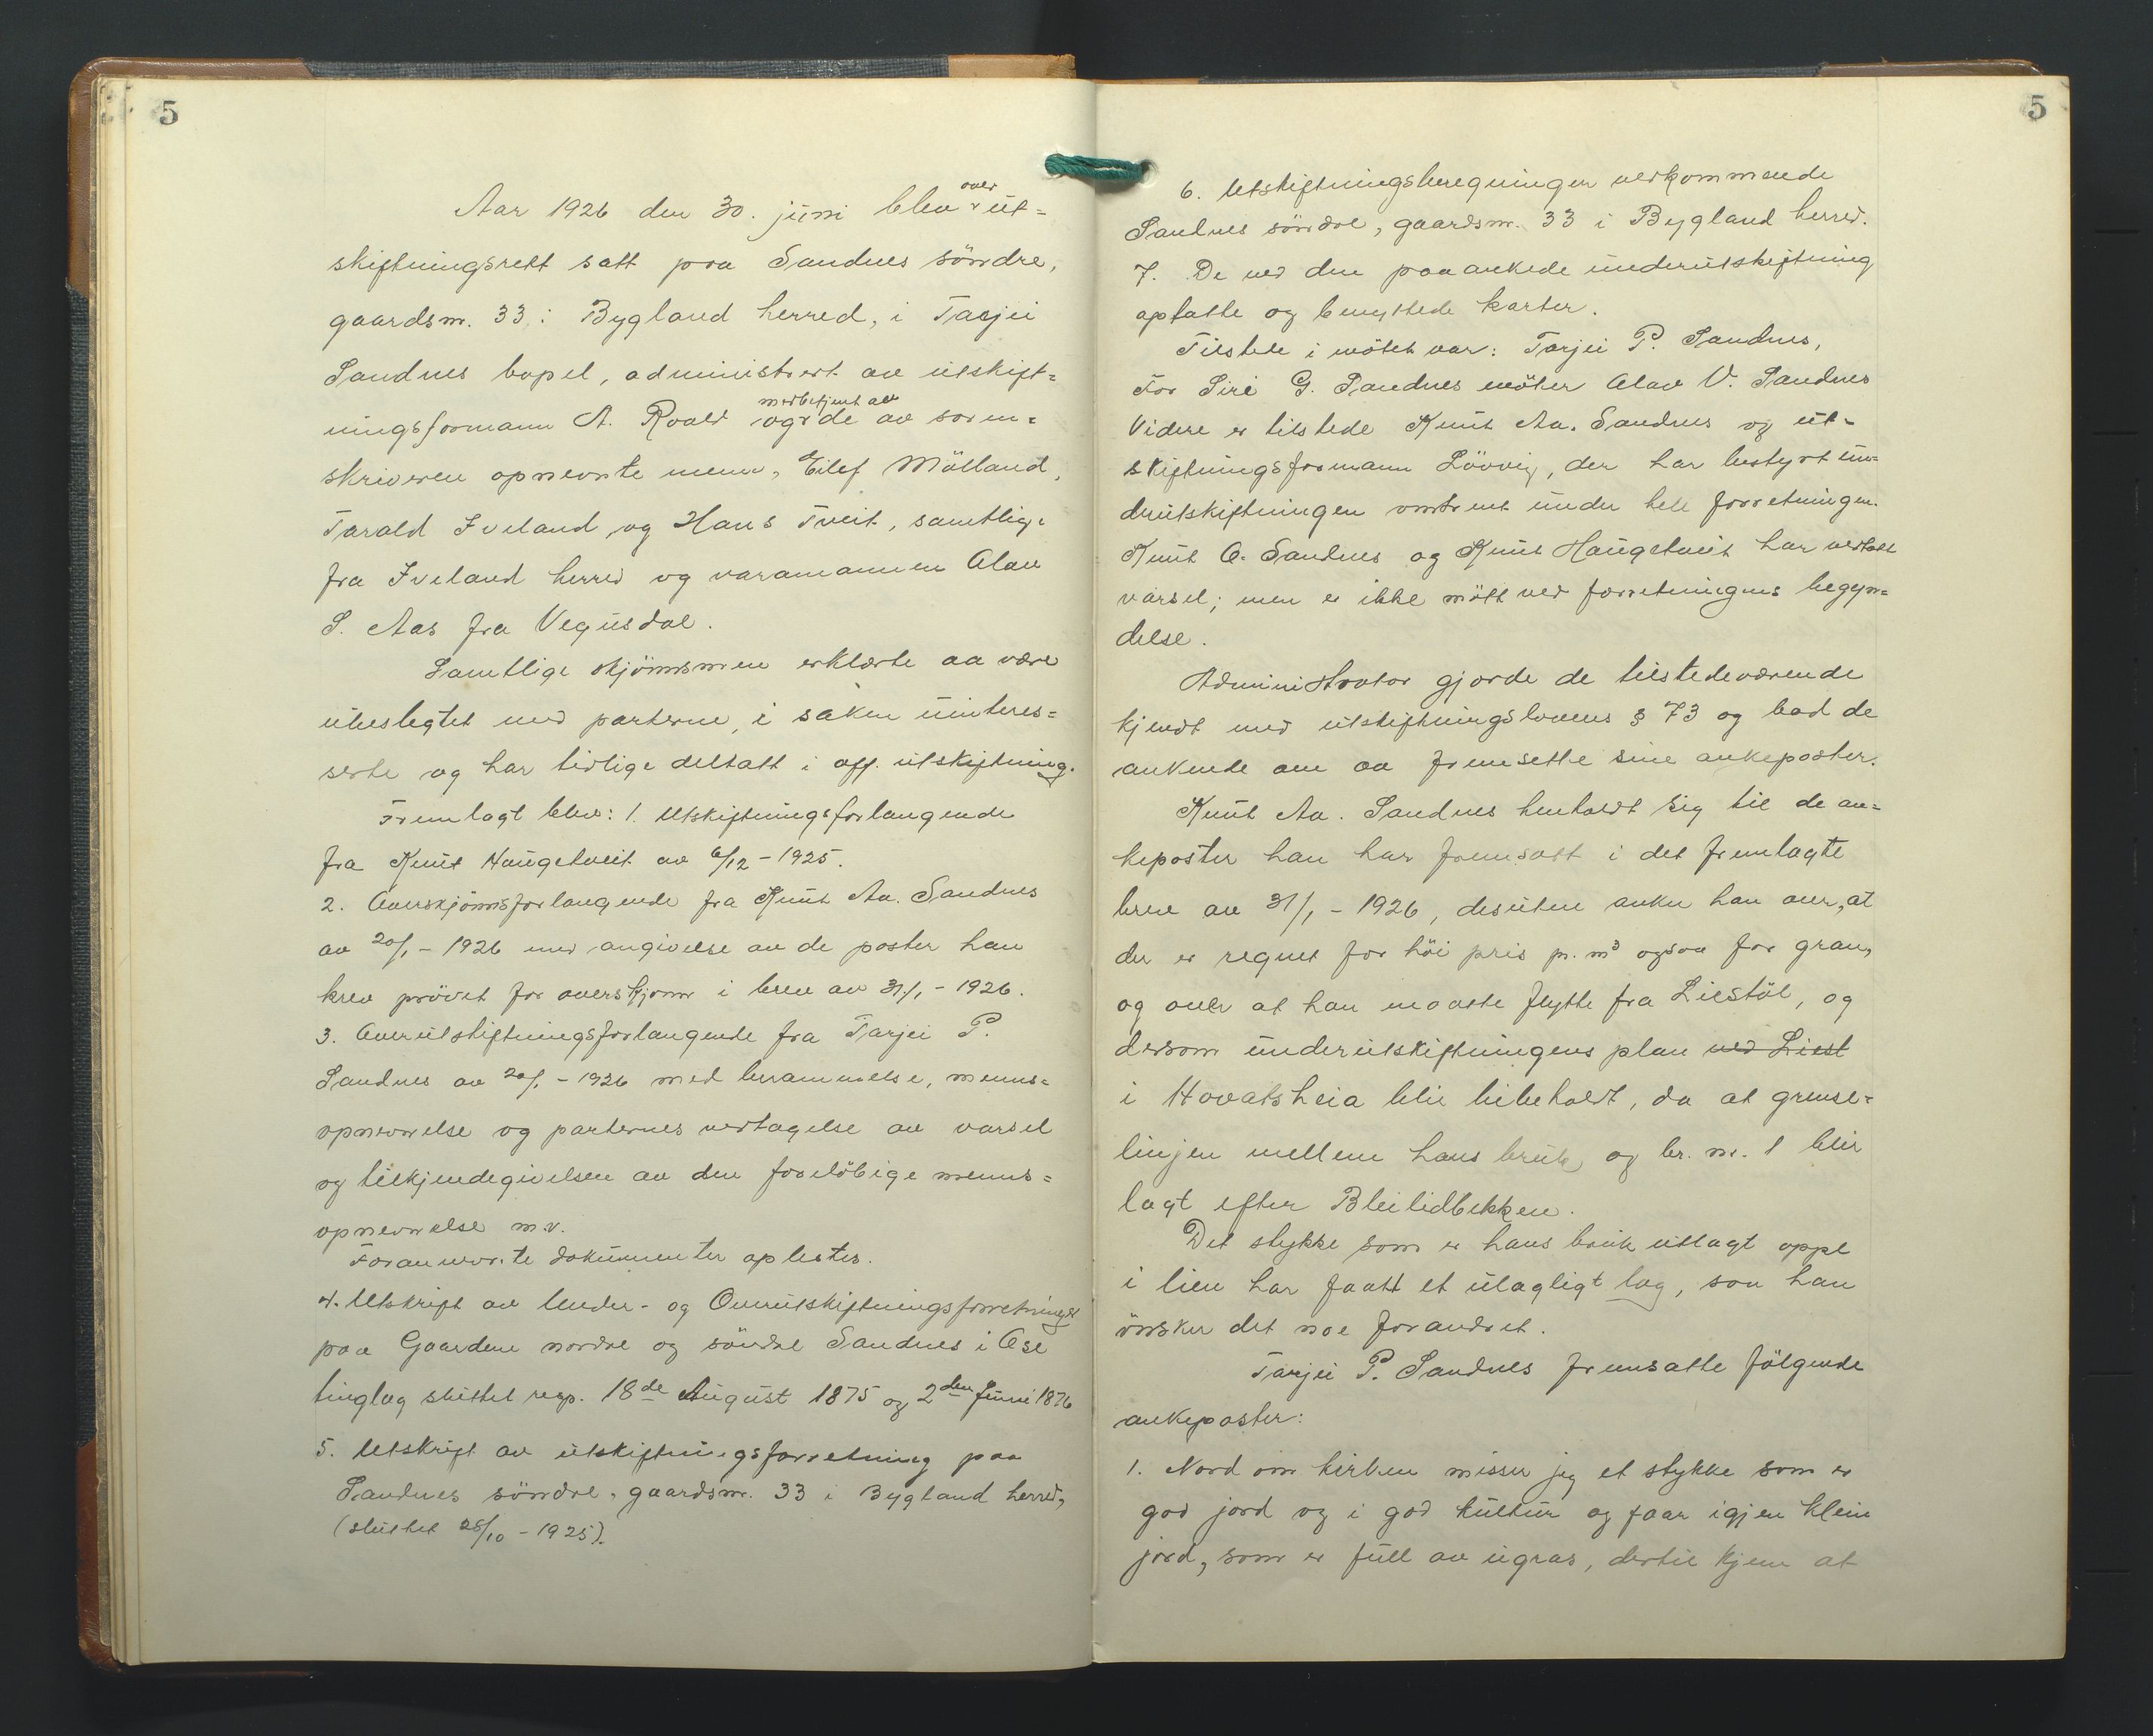 5
Aar 1926 den 30. juni blev over ut-
skiftningsrett satt paa Sandnes söndre,
gaardsnr. 33 i Bygland herred, i Tarjei
Sandnes bopel, administrert av utskift-
ningsformann A. Roald medbetjent av og de av soren-
skriveren opnevnte menn, Eilef Mölland,
Tarald Iveland og Hans Tveit, samtlige
fra Iveland herred og varamannen Olav
S. Aas fra Vegusdal.
Samtlige skjönnsmenn erklærte aa være
ubeslegtet med parterne, i saken uinteres-
serte og har tidlige deltatt i off. utskiftning.
Fremlagt blev: 1. Utskiftningsforlangende
fra Knut Haugetveit av 6/12 - 1925.
2. Overskjönnsforlangende fra Knut Aa. Sandnes
av 20/1 - 1926 med angivelse av de poster han
krev prövet for overskjønn i brev av 31/1 - 1926.
3. Overutskiftningsforlangende fra Tarjei P.
Sandnes av 20/1 - 1926 med berammelse, menns-
opnevnelse og parternes vedtagelse av varsel
og tilkjendegivelsen av den forelöbige menns-
opnevnelse m.v.
Forannevnte dokumenter oplestes.
4. Utskrift av Under- og Overutskiftningsforretninger
paa Gaardene nordre og söndre Sandnes i Ose
tinglag sluttet resp. 18de August 1875 og 2den Juni 1876
5. Utskrift av utskiftningsforretning paa
Sandnes söndre, gaardsnr. 33 i Bygland herred,
(sluttet 28/10 - 1925).
5
6. Utskiftningsberegninger vedkommende
Sandnes söndre, gaardsnr. 33 i Bygland herred.
7. De ved den paaankede underutskiftning
optatte og benyttede karter.
Tilstede i mötet var: Tarjei P. Sandnes,
For Siri G. Sandnes möter Olav V. Sandnes
Videre er tilstede Knut Aa. Sandnes og ut-
skiftningsformann Lövvig, der har bestyrt un-
derutskiftningen omtrent under hele forretningen.
Knut O. Sandnes og Knut Haugetveit har vedtatt
varsel; men er ikke mött ved forretningens begyn-
delse.
Administrator gjorde de tilstedeværende
kjendt med utskiftningslovens § 73 og bad de
ankende om aa fremsette sine ankeposter.
Knut Aa. Sandnes henholdt sig til de an-
keposter han har fremsatt i det fremlagte
brev av 31/1 - 1926, desuten anker han over, at
der er regnet for höi pris pr. m3 ogsaa for gran,
og over at han maatte flytte fra Liestöl, og
dersom underutskiftningens plan ved Liest
i Hovatsheia blir bibeholdt, da at grense-
linjen mellem hans bruk og br. nr. 1 blir
lagt efter Bleilidbekken.
Det stykke som er hans bruk utlagt oppe
i lien har faatt et ulagligt lag, saa han
önsker det noe forandret.
Tarjei P. Sandnes fremsatte fölgende
ankeposter:
1. Nord om kirken misser jeg et stykke som er
god jord og i god kultur og faar igjen klein
jord, som er full av ugras, dertil kjem at